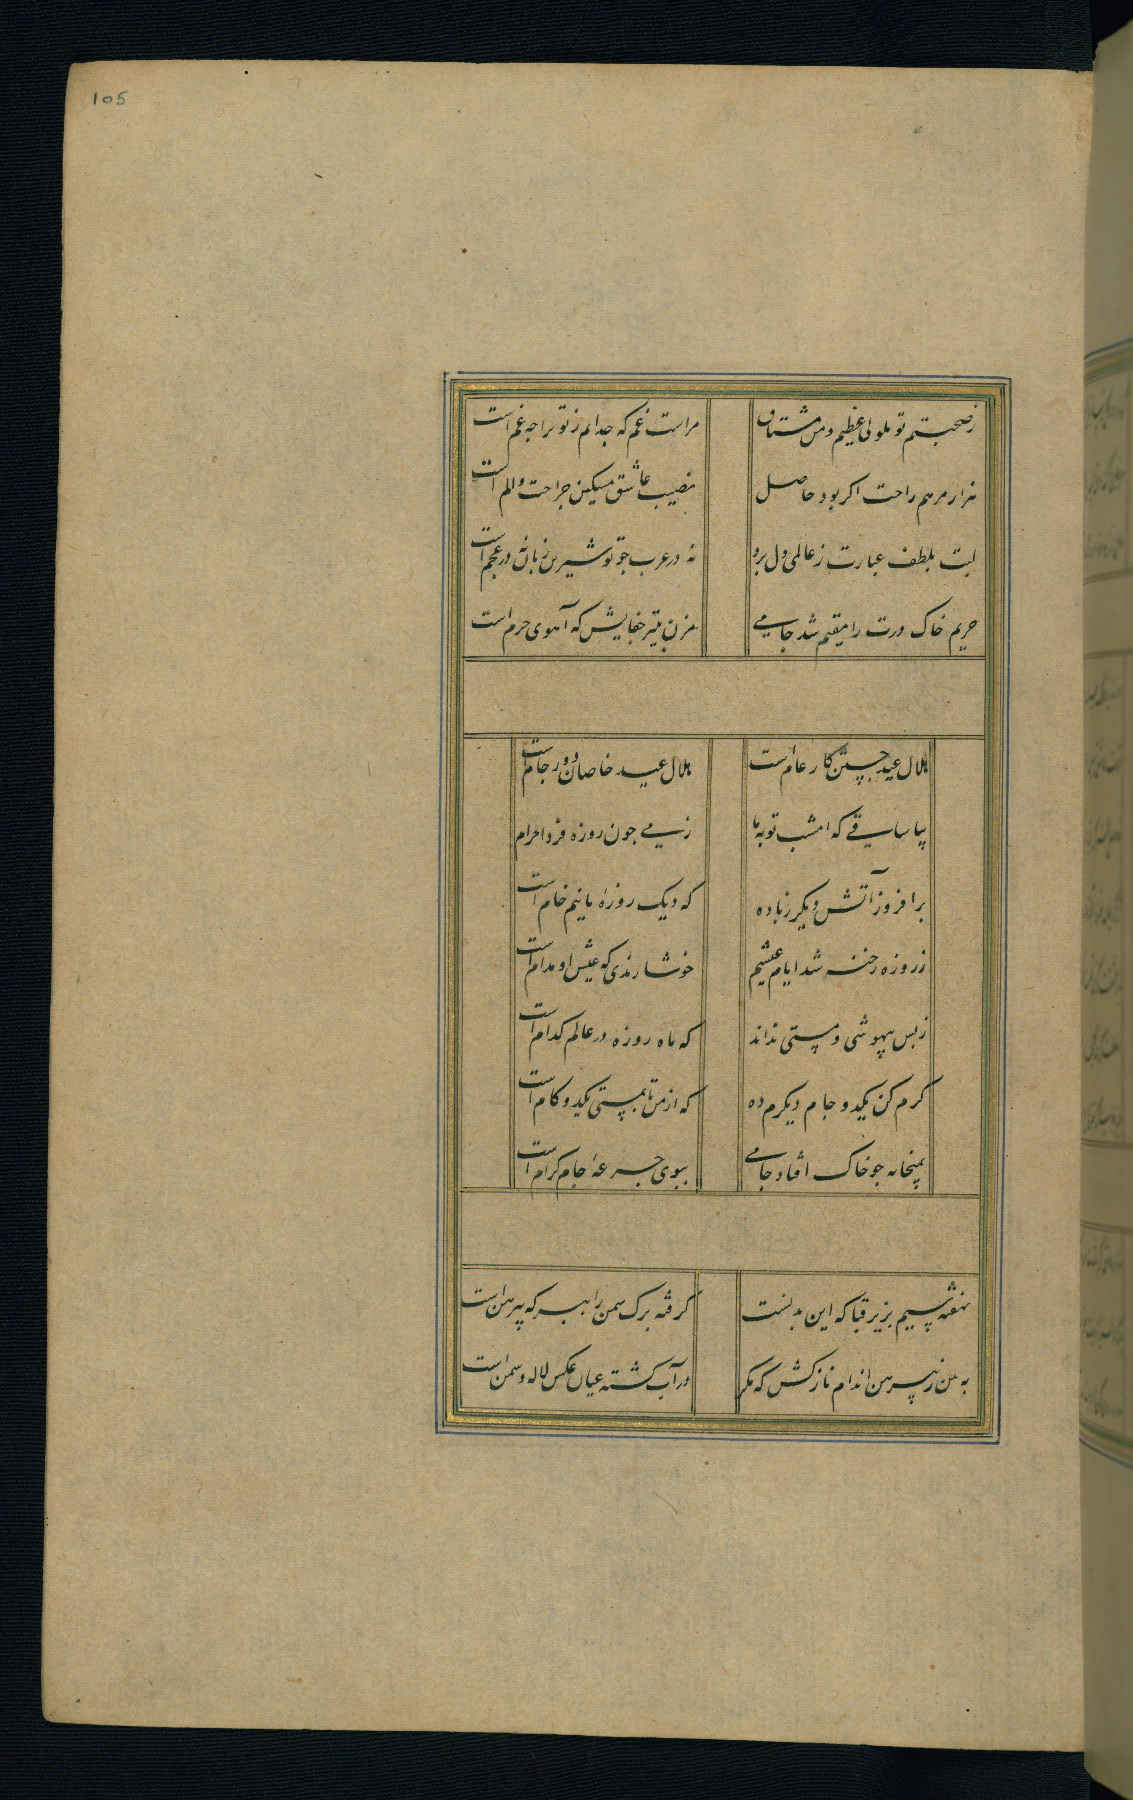 105
ز صحبتم تو ملولی عظیم و من مشتاق مراست غم که جدایم ز تو ترا چه غم است
هزار مرهم راحت اکر بود حاصل نصیب عاشق مسکین جراحت و الم است
لبت بلطف عبارت ز عالمی دل برد نه در عرب جو تو شیرین زبان نه در عجم است
حریم خاک درت را مقیم شد جامی مزن بتیر جفایش که آهوی حرم است
هلال عید جستن کار عام است هلال عید خاصان دور جام است
بیا ساقی که امشب توبه ما ز می جون روزه فردا حرام
برافروز آتش دیکر ز باده که دیک روزهٔ ما نیم خام است
ز روزه رخنه شد ایام عیشم خوشا رندی که عیش او مدام است
ز بس بیهوشی و مستی نداند که ماه روزه در عالم کدام است
کرم کن یکدو جام دیکرم ده که از من تا بمستی یکدو کام است
بمیخانه جو خاک افتاد جامی ببوی جرعهٔ جام کرام است
نهفته سیم بزیر قبا که این بدنست کرفته برک سمن را ببر که پیرهن است
به من ز پیرهن اندام نازکش که مکر در آب کشته عیان عکس لاله و سمن است